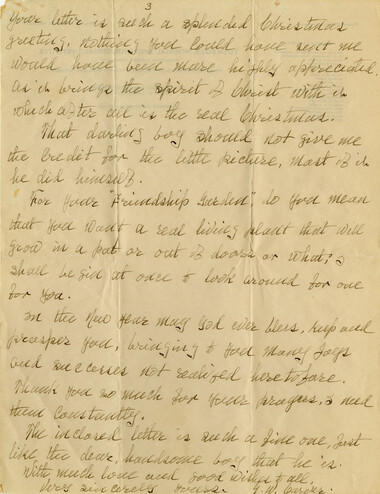 3
Your letter is such a splendid Christmas
greeting, nothing you could have sent me
would have been more highly appreciated,
as it brings the spirit of Christ with it
which after all is the real Christmas.
That darling boy should not give me
the credit for the little picture, most of it
he did himself.
For your "Friendship Garden", do you mean
that you want a real living plant that will
grow in a pot or out of doors or what; I
shall begin at once to look around for one
for you.
In the New Year may God ever bless, keep and
prosper you, bringing to you many joys
and successes not realized heretofore.
Thank you so much for your prayers, I need
them constantly.
The inclosed letter is such a fine one, just
like the dear, handsome boy that he is.
With much love and good wishes to all,
Very sincerely yours. G. W. Carver